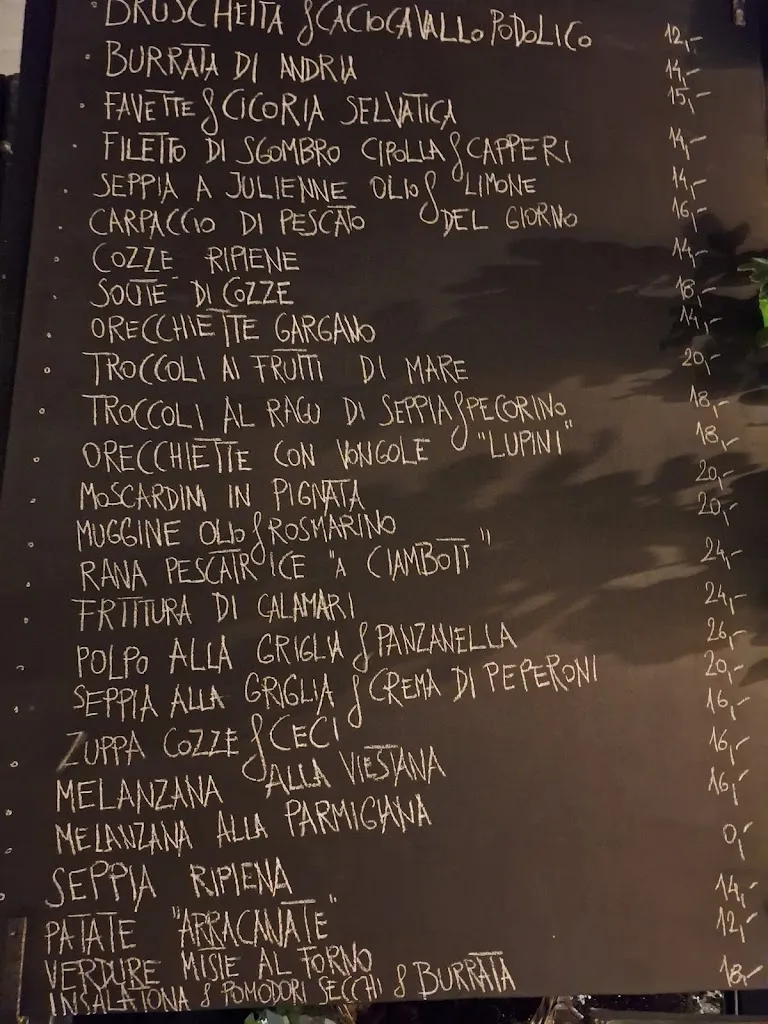 · BRUSCHETTA & CACIOCAVALLO PODOLICO 12,-
· BURRATA DI ANDRIA 14,-
· FAVETTE & CICORIA SELVATICA 15,-
· FILETTO DI SGOMBRO CIPOLLA & CAPPERI 14,-
· SEPPIA A JULIENNE OLIO & LIMONE 14,-
· CARPACCIO DI PESCATO DEL GIORNO 16,-
· COZZE RIPIENE 14,-
· SOUTÈ DI COZZE 18,-
· ORECCHIETTE GARGANO 14,-
· TROCCOLI AI FRUTTI DI MARE 20,-
· TROCCOLI AL RAGU DI SEPPIA & PECORINO 18,-
· ORECCHIETTE CON VONGOLE "LUPINI" 18,-
· MOSCARDINI IN PIGNATA 20,-
· MUGGINE OLIO & ROSMARINO 20,-
· RANA PESCATRICE "A CIAMBOTT" 24,-
· FRITTURA DI CALAMARI 24,-
· POLPO ALLA GRIGLIA & PANZANELLA 26,-
· SEPPIA ALLA GRIGLIA & CREMA DI PEPERONI 20,-
· ZUPPA COZZE & CECI 16,-
· MELANZANA ALLA VIESTANA 16,-
· MELANZANA ALLA PARMIGIANA 16,-
· SEPPIA RIPIENA 0,-
PATATE "ARRACANATE" 14,-
VERDURE MISTE AL FORNO 12,-
INSALATONA & POMODORI SECCHI & BURRATA 18,-